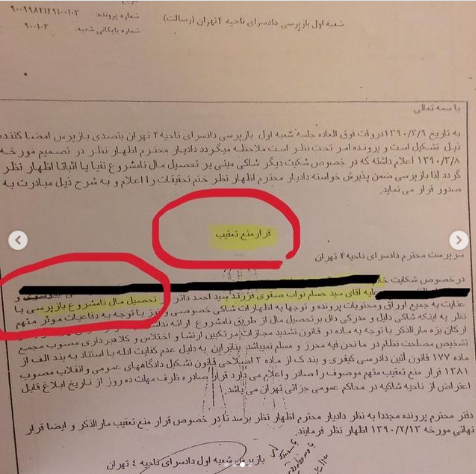 شعبه اول بازپرسی دادسرای ناحیه ۴ تهران (رسالت)
شماره پرونده:
شماره بایگانی شعبه:
با سمه تعالی
به تاریخ ۱۳۹۰/۳/۹ دروقت فوق العاده جلسه شعبه اول بازپرسی دادسرای ناحیه ۴ تهران بتصدی بازپرس امضا کننده
ذیل تشکیل است و پرونده امر تحت نظر است ملاحظه میگردد دادیار محترم اظهار نظر در تصمیم مورخه
۱۳۹۰/۳/۸ اعلام داشته که در خصوص شکایت دیگر شاکی مبنی بر تحصیل مال نامشروع نفیا یا اثباتا اظهار نظر
گردد لذا بازپرسی ضمن پذیرش خواسته دادیار محترم اظهار نظر ختم تحقیقات را اعلام و به شرح ذیل مبادرت به
صدور قرار می نماید
قرار منع تعقیب
سرپرست محترم دادسرای ناحیه ۴ تهران
در خصوص شکایت
علیه آقای سید حسام نواب صفوی فرزند سید احمد دائر
تحصیل مال نامشروع بازپرسی با
عنایت به جمیع اوراق ومحتویات پرونده و توجه به اظهارات شاکی خصوصی و نیز با توجه به دفاعیات موثر متهم
نظر به اینکه شاکی دلیل و مدرکی دال بر تحصیل مال از طریق نامشروع ارائه
ارکان بزه مار الذکر با توجه به ماده دو قانون تشدید مجازات مرتکبین ارتشا و اختلاس و کلاهبرداری مصوب مجمع
تشخیص مصلحت نظام در ما نحن فیه محرز و مسلم نمیباشد بنابراین به دلیل عدم کفایت ادله با استناد به بند الف از
ماده ۱۷۷ قانون آئین دادرسی کیفری و بند ک از ماده ۳ اصلاحی قانون تشکیل دادگاههای عمومی وانقلاب مصوب
۱۳۸۱ قرار منع تعقیب متهم موصوف را صادر واعلام می دارد قرار صادره ظرف مهلت ده روز از تاریخ ابلاغ قابل
اعتراض از ناحیه شاکیه در محاکم عمومی جزائی تهران می باشد
دفتر محترم پرونده مجددا به نظر دادیار محترم اظهار نظر برسد تا در خصوص قرار منع تعقیب مار الذکر و ایضا قرار
نهائی مورخه ۱۳۹۰/۲/۱۳ اظهار نظر فرمایند.
بازپرس شعبه اول دادسرای ناحیه ۴ تهران